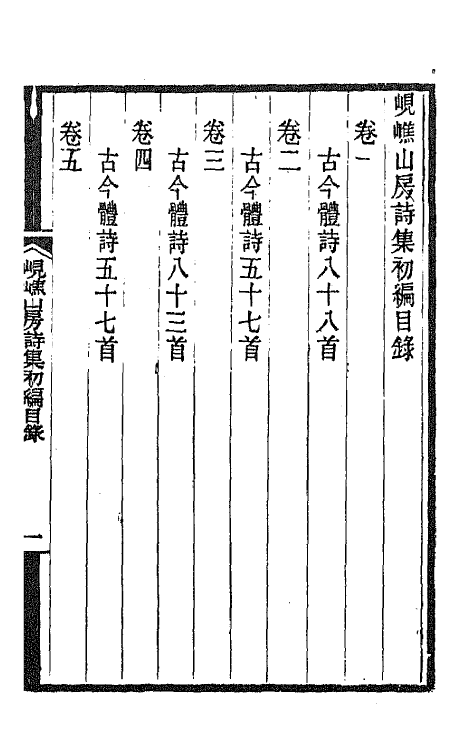 峴嶕山房詩集初編目錄
卷一
古今體詩八十八首
卷二
古今體詩五十七首
卷三
古今體詩八十三首
卷四
古今體詩五十七首
卷五
峴嶕山房詩集初編目錄
一